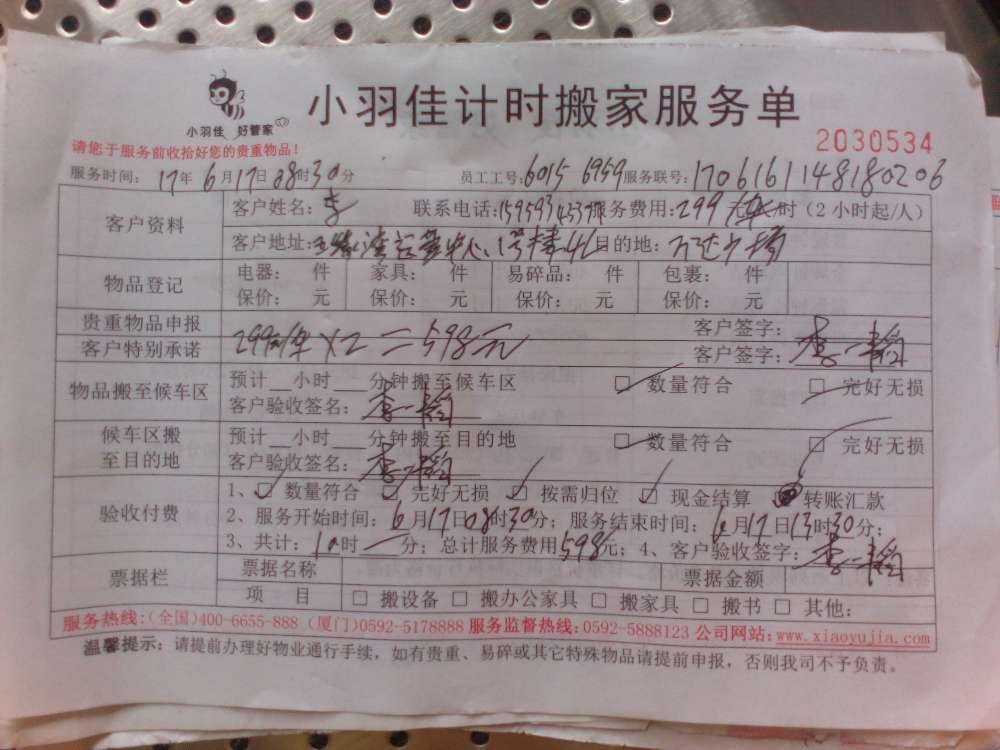 小羽佳 好管家
小羽佳计时搬家服务单
2030534
请您于服务前收拾好您的贵重物品！
服务时间： 17年 6月17日 08时30分 员工工号：6015 6959 服务联号：1706161148180206
客户资料 客户姓名：李 联系电话： 服务费用：299元 时（2小时起/人）
客户地址： 运营中心 1号楼4L 目的地：万达广场
物品登记 电器： 件 家具： 件 易碎品： 件 包裹： 件
保价： 元 保价： 元 保价： 元 保价： 元
贵重物品申报 客户签字：
客户特别承诺 299 X2=598元 客户签字：李
物品搬至候车区 预计__小时___分钟搬至候车区 □数量符合 □完好无损
客户验收签名：李
候车区搬至目的地 预计__小时___分钟搬至目的地 □数量符合 □完好无损
客户验收签名：李
验收付费 1、□数量符合 □完好无损 □按需归位 □现金结算 转账汇款
2、服务开始时间：6月17日08时30分；服务结束时间：6月17日13时30分；
3、共计： 时 分；总计服务费用598元；4、客户验收签字：李
票据栏 票据名称 票据金额
项 目 □搬设备 □搬办公家具 □搬家具 □搬书 □其他：
服务热线：(全国)400-6655-888 (厦门)0592-5178888 服务监督热线：0592-5888123 公司网站：www.xiaoyujia.com
温馨提示：请提前办理好物业通行手续，如有贵重、易碎或其它特殊物品请提前申报，否则我司不予负责。